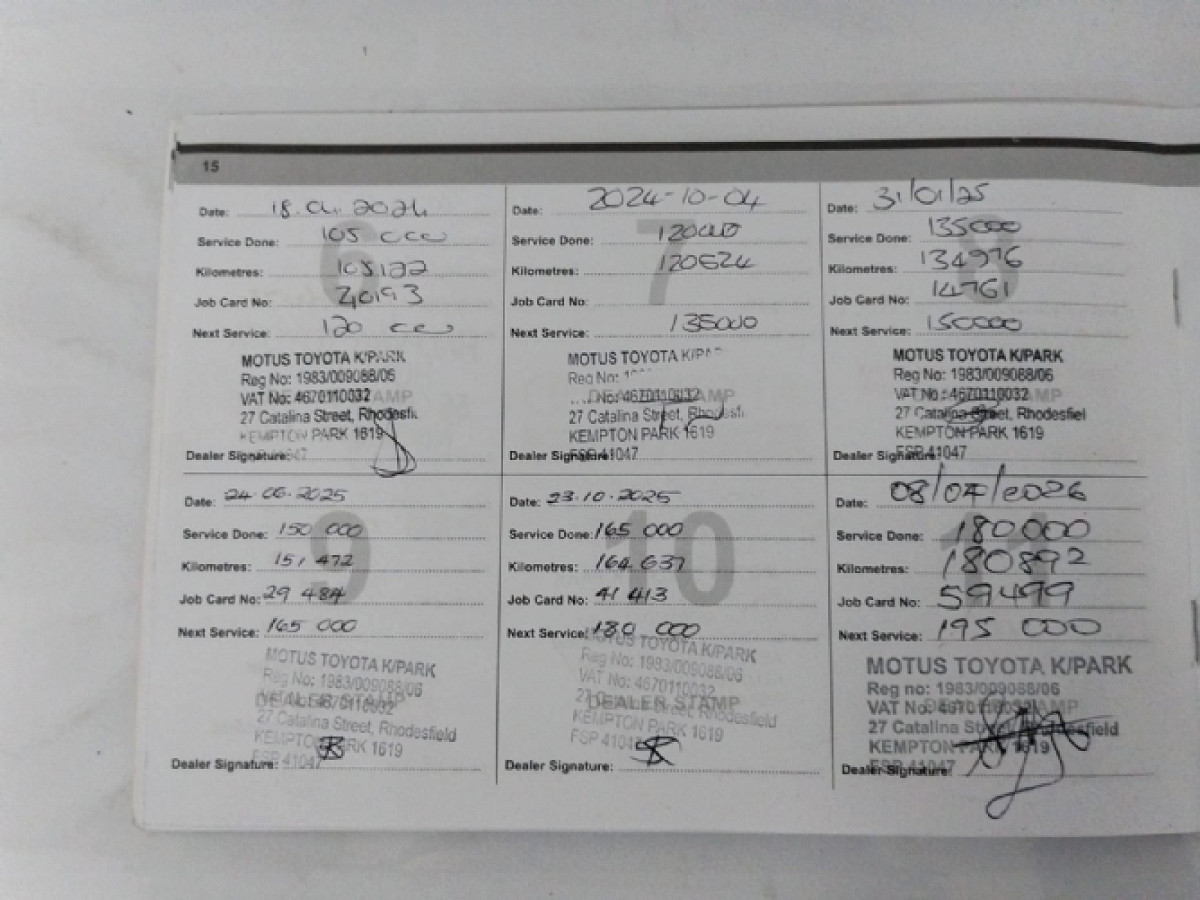 15
Date: 18.04.2024
Service Done: 105 000
Kilometres: 105122
Job Card No:
Next Service: 120 000
MOTUS TOYOTA K/PARK
Reg No: 1983/009088/06
VAT No: 4670110032
27 Catalina Street, Rhodesfi
KEMPTON PARK 1619
Dealer Signature:
6
Date: 2024-10-04
Service Done: 120000
Kilometres: 120624
Job Card No:
Next Service: 135000
MOTUS TOYOTA K/PAR
Reg No:
No: 4670110032
27 Catalina Street, Rhodesfi
KEMPTON PARK 1619
FSP 41047
Dealer Signature:
7
Date: 31/01/25
Service Done: 135000
Kilometres: 134976
Job Card No: 14761
Next Service: 150000
MOTUS TOYOTA K/PARK
Reg No: 1983/009088/06
VAT No: 4670110032
27 Catalina Street, Rhodesfiel
KEMPTON PARK 1619
FSP 41047
Dealer Signature:
8
Date: 24.06.2025
Service Done: 150 000
Kilometres: 151 472
Job Card No: 29 484
Next Service: 165 000
MOTUS TOYOTA K/PARK
Reg No: 1983/009088/06
DEALER STAMP
27 Catalina Street, Rhodesfield
KEMPTON PARK 1619
FSP 41047
Dealer Signature:
9
Date: 23.10.2025
Service Done: 165 000
Kilometres: 164 637
Job Card No: 41 413
Next Service: 180 000
MOTUS TOYOTA K/PARK
Reg No: 1983/009088/06
VAT No: 4670110032
DEALER STAMP
KEMPTON PARK 1619
FSP 41047
Dealer Signature:
10
Date: 08/04/2026
Service Done: 180000
Kilometres: 180892
Job Card No: 59499
Next Service: 195 000
MOTUS TOYOTA K/PARK
Reg no: 1983/009088/06
VAT No: 4670110032
27 Catalina Street, Rhodesfield
KEMPTON PARK 1619
FSP 41047
Dealer Signature: